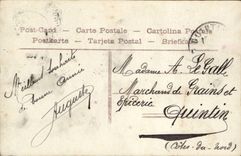 Post-Card Carte Postale Cartolina Postale
Postkarte Tarjeta Postal Briefkaart
Meilleurs souhaits
de bonne année
Auguste
Madame A. Le Gall
Marchand de Grains et
Epicerie
Quintin
(Côtes-du-Nord)